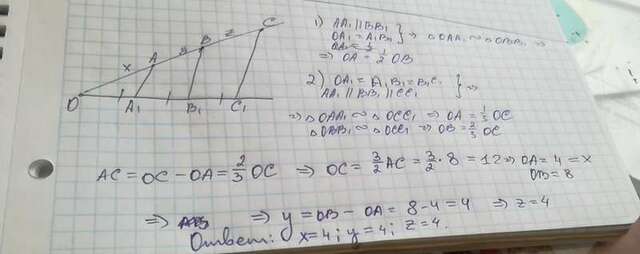 C
z
B
y
A
x
O
A₁
B₁
C₁
1) AA₁ || BB₁
OA₁ = A₁B₁ } ⇒ △OAA₁ ∾ △OBB₁ ⇒
⇒ OA = 1/2 OB
2) OA₁ = A₁B₁ = B₁C₁
AA₁ || BB₁ || CC₁ } ⇒
⇒ △OAA₁ ∾ △OCC₁ ⇒ OA = 1/3 OC
△OBB₁ ∾ △OCC₁ ⇒ OB = 2/3 OC
AC = OC - OA = 2/3 OC ⇒ OC = 3/2 AC = 3/2 · 8 = 12 ⇒ OA = 4 = x
OB = 8
⇒ ⇒ y = OB - OA = 8 - 4 = 4 ⇒ z = 4
Ответ: x = 4; y = 4; z = 4.